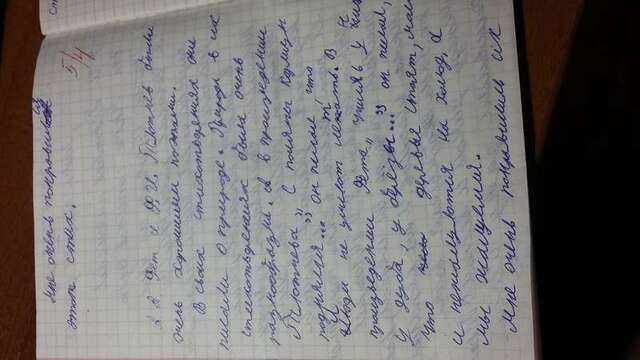 Мне очень понравился
этот стих.
5/4
А. А. Фет и Ф. И. Тютчев были
очень хорошими поэтами.
В своих стихотвдениях они
писали о природе. Природа в их
стихотвдениях была очень
разнообразна. А в произведении
Тютчева „С поляны коршун
поднялся..." он писал, что
люди не умеют летать. В
произведении Фета „Учись у них
у дуба, у берёзы..." он писал,
что деревья стоят, молчат
и нежалуются на холод, а
мы жалуемся.
Мне очень понравились их